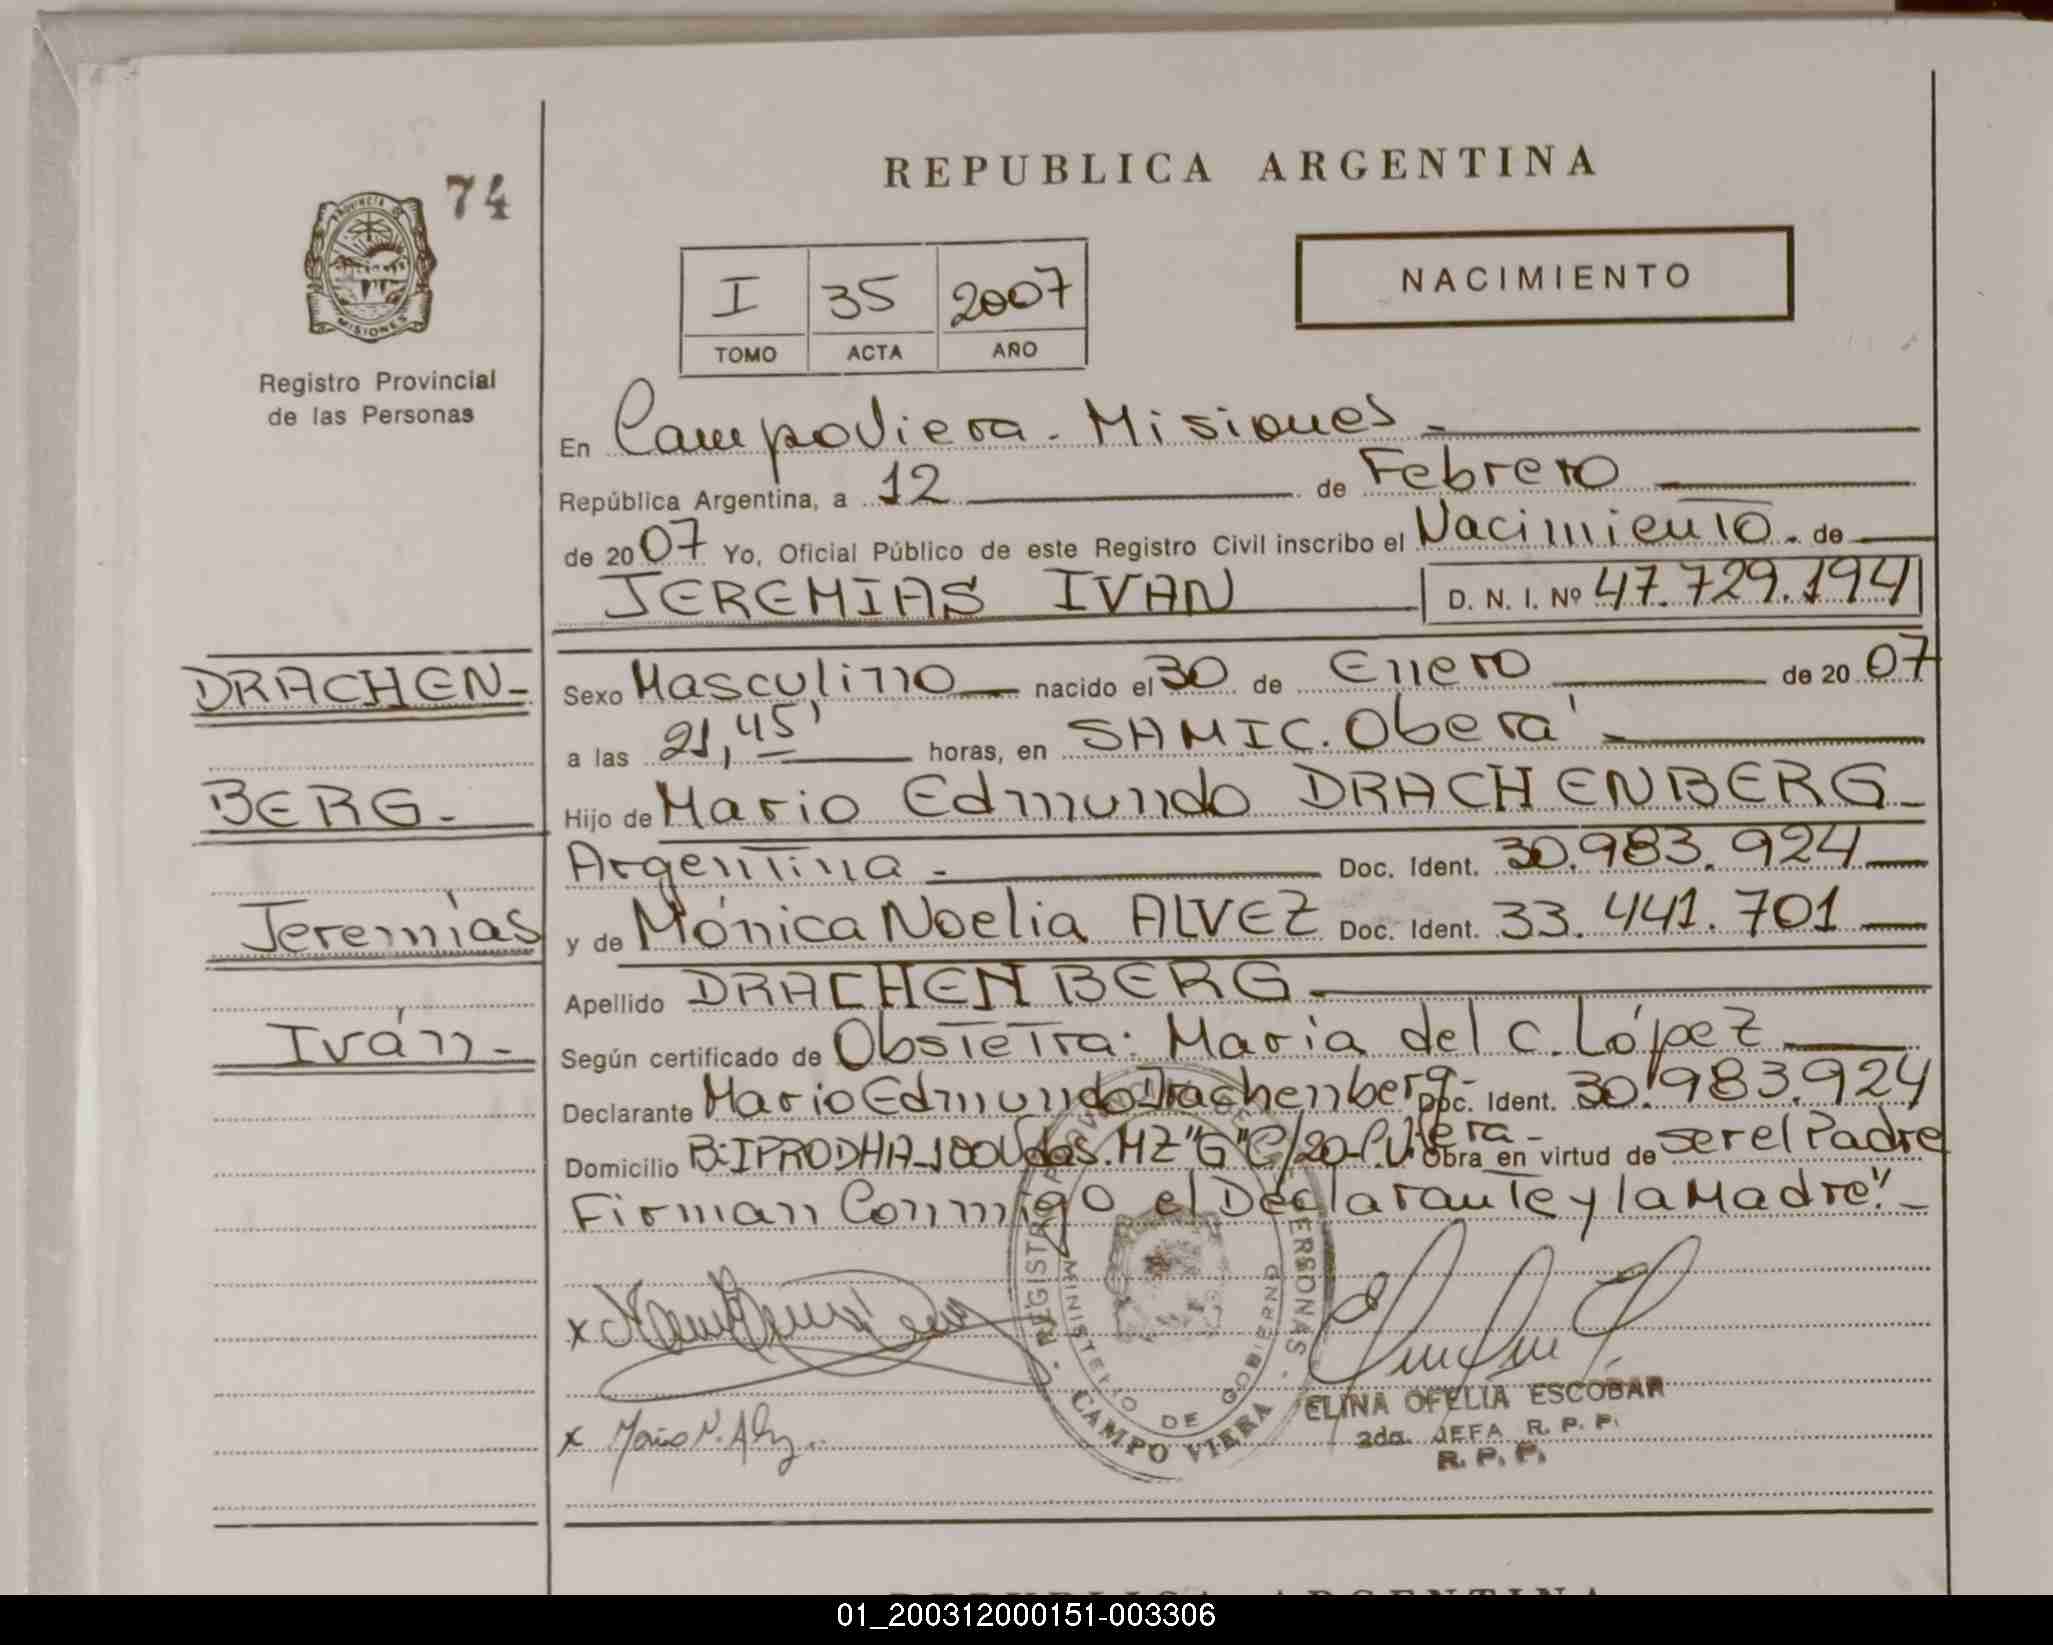 74
REPUBLICA ARGENTINA
PROVINCIA DE
MISIONES
I 35 2007
TOMO ACTA AÑO
NACIMIENTO
Registro Provincial
de las Personas
En Campo Viera - Misiones -
República Argentina, a 12 de Febrero
de 2007 Yo, Oficial Público de este Registro Civil inscribo el Nacimiento. de
JEREMIAS IVAN D. N. I. Nº 47.729.194
DRACHEN-
BERG.-
Jeremías
Iván.-
Sexo Masculino nacido el 30 de Enero de 2007
a las 21,45' horas, en SAMIC. Oberá -
Hijo de Mario Edmundo DRACHENBERG -
Argentina - Doc. Ident. 30.983.924
y de Mónica Noelia ALVEZ Doc. Ident. 33.441.701
Apellido DRACHENBERG
Según certificado de Obstetra: Maria del C. López
Declarante Mario Edmundo Drachenberg- Doc. Ident. 30.983.924
Domicilio B: IPRODHA-100 Vdas. MZ "G" C/20- Obra en virtud de ser el Padre
Firman Conmigo el Declarante y la Madre".-
x
x
MINISTERIO DE GOBIERNO
CAMPO VIERA
ELINA OFELIA ESCOBAR
2da. JEFA R. P. P.
R. P. P.
REPUBLICA ARGENTINA
01_200312000151-003306